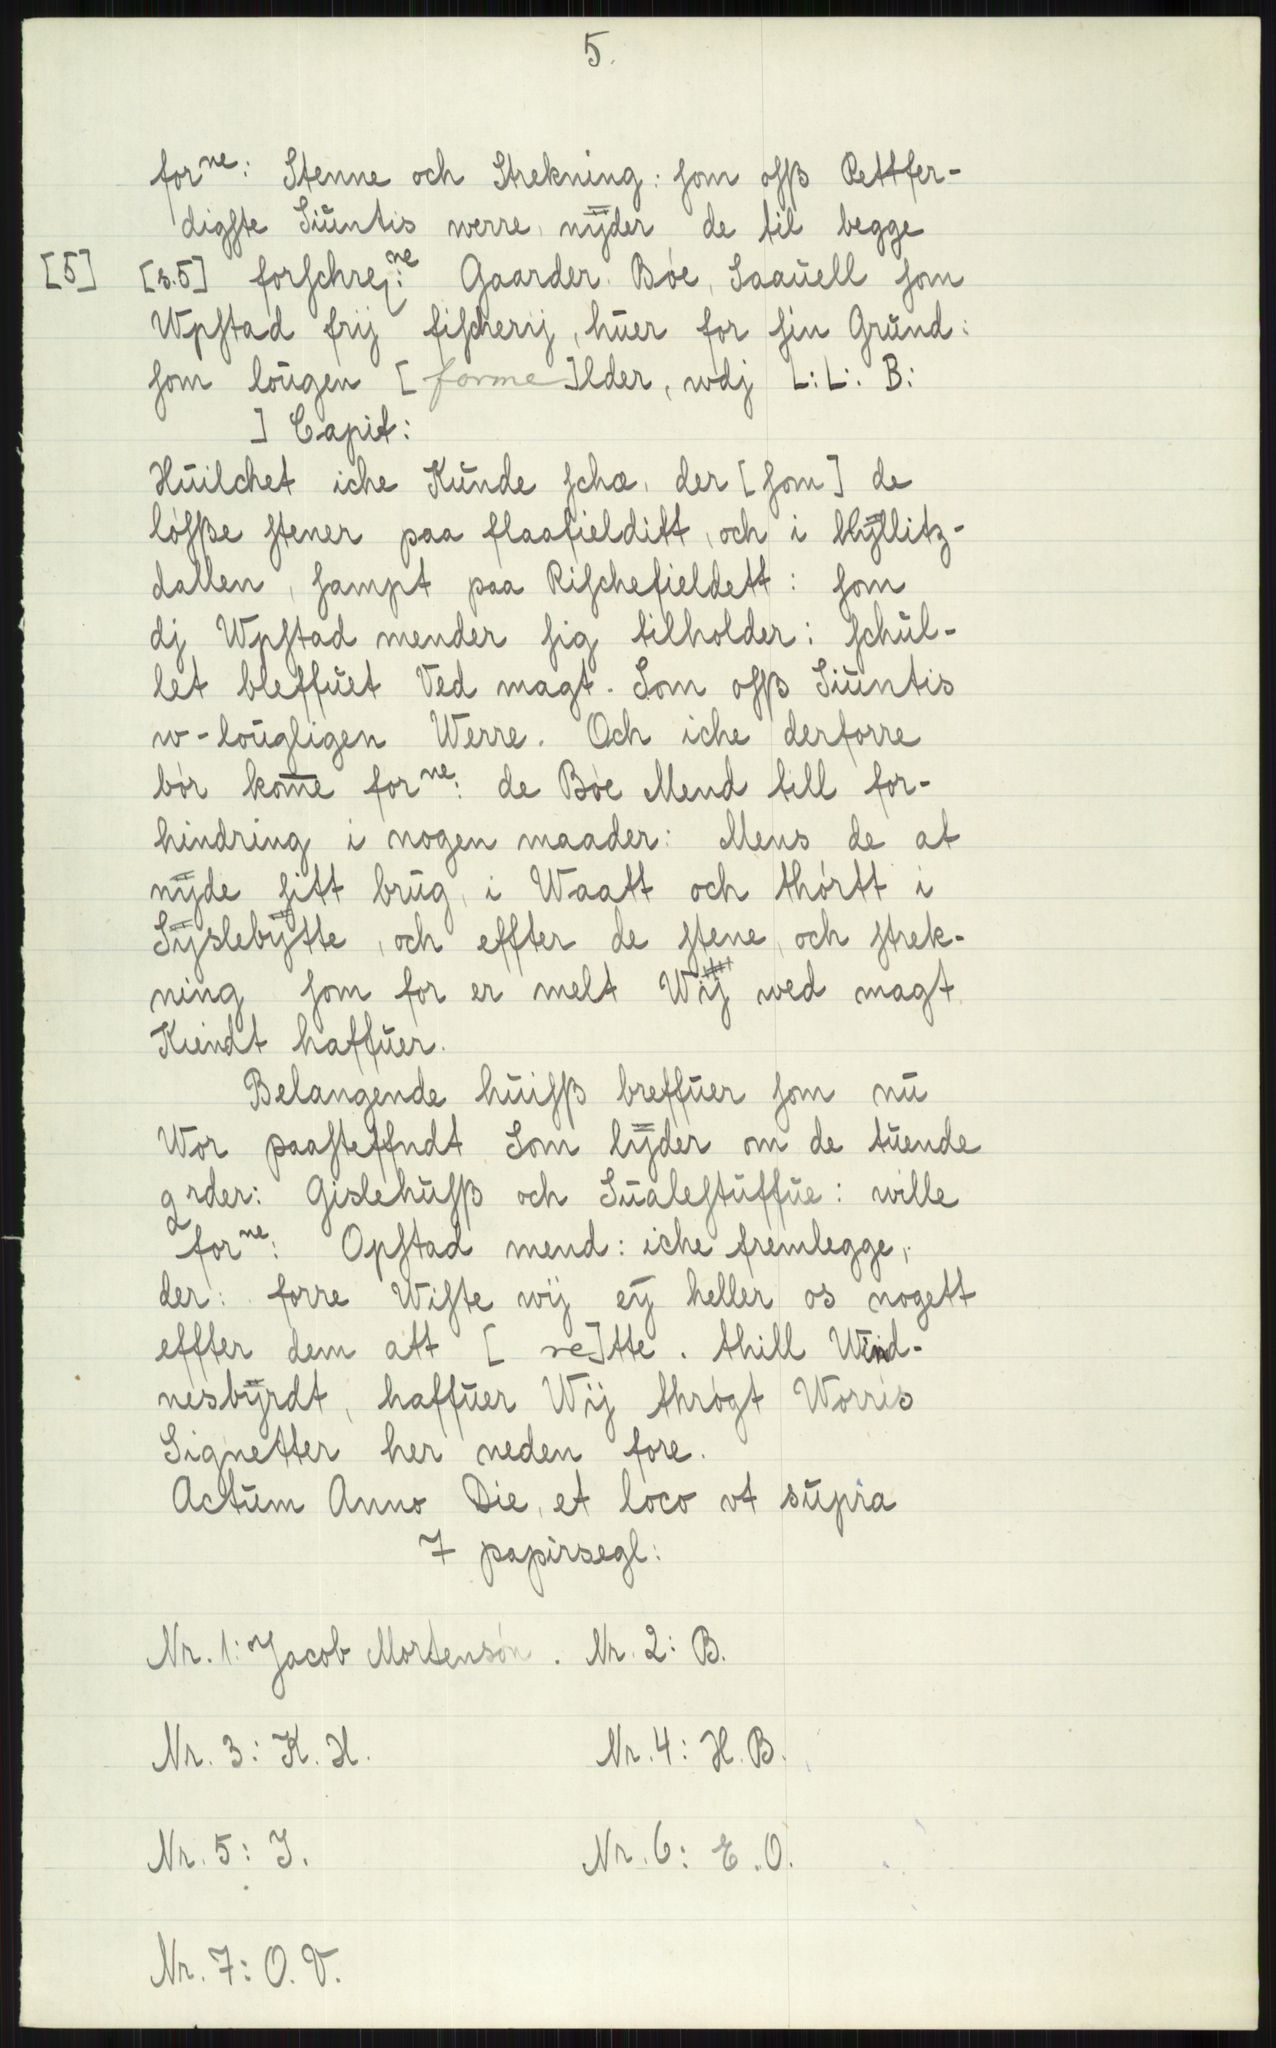 5.
forne: Stenne och Strekning: som osß Rettfer-
digste Siuntis werre, nÿder de til begge
[5] [s.5] forschrej:ne Gaarder. Bóe, Saauell som
Wpstad frij fischerij, huer for sin Grund:
som lougen [forme]lder, wdj L: L: B:
] Capit:
Huilchet iche Kunde sche, der [som] de
lósße stener paa flaafielditt, och i Hÿllitz-
dallen, sampt paa Rischefieldett: som
dj Wpstad mender sig tilholder: schul-
let bleffuet Ved magt. Som osß Siuntis
w-lougligen Werre. Och iche derforre
bór kom̅e forne: de Bóe Mend till for-
hindring i nogen maader: Mens de at
nÿde sitt brug, i Waatt och thórtt i
Sÿslebÿtte, och effter de stene, och strek-
ning som for er melt Wij wed magt
Kiendt haffuer.
Belangende huisß breffuer som nu
Wor paasteffndt Som lÿder om de tuende
grder: Gislehusß och Sualestuffue: wille
forne: Opstad mend: iche fremlegge,
der: forre Wiste wij eÿ heller os nogett
effter dem att [ re]tte. thill Wind-
nesbÿrdt, haffuer Wij thrógt Worris
Signetter her neden fore.
Actum Anno Die, et loco vt supra
7 papirsegl:
Nr. 1: Jacob Mortensón. Nr. 2: B.
Nr. 3: K. H. Nr. 4: H. B.
Nr. 5: J. Nr. 6: E. O.
Nr. 7: O. V.